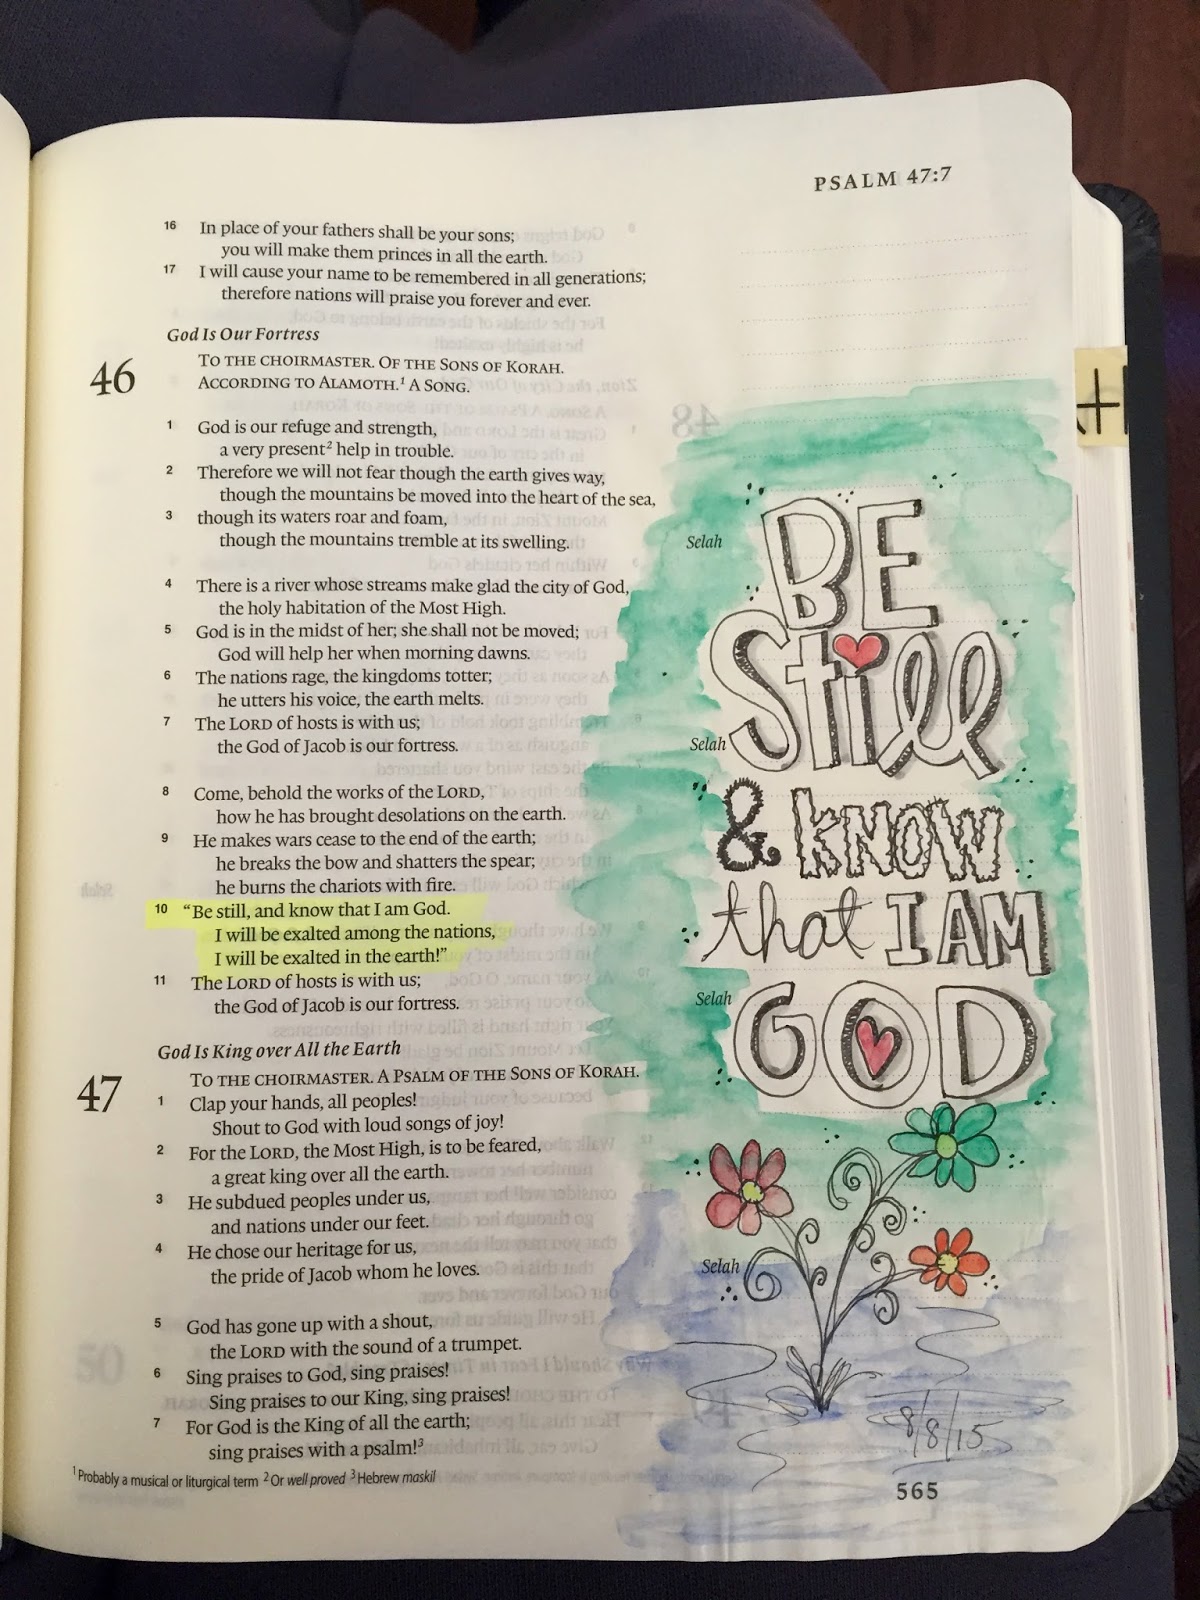 PSALM 47:7
16 In place of your fathers shall be your sons;
you will make them princes in all the earth.
17 I will cause your name to be remembered in all generations;
therefore nations will praise you forever and ever.
God Is Our Fortress
46
TO THE CHOIRMASTER. OF THE SONS OF KORAH.
ACCORDING TO ALAMOTH.1 A SONG.
1 God is our refuge and strength,
a very present2 help in trouble.
2 Therefore we will not fear though the earth gives way,
though the mountains be moved into the heart of the sea,
3 though its waters roar and foam,
though the mountains tremble at its swelling. Selah
4 There is a river whose streams make glad the city of God,
the holy habitation of the Most High.
5 God is in the midst of her; she shall not be moved;
God will help her when morning dawns.
6 The nations rage, the kingdoms totter;
he utters his voice, the earth melts.
7 The LORD of hosts is with us;
the God of Jacob is our fortress. Selah
8 Come, behold the works of the LORD,
how he has brought desolations on the earth.
9 He makes wars cease to the end of the earth;
he breaks the bow and shatters the spear;
he burns the chariots with fire.
10 “Be still, and know that I am God.
I will be exalted among the nations,
I will be exalted in the earth!”
11 The LORD of hosts is with us;
the God of Jacob is our fortress. Selah
God Is King over All the Earth
47
TO THE CHOIRMASTER. A PSALM OF THE SONS OF KORAH.
1 Clap your hands, all peoples!
Shout to God with loud songs of joy!
2 For the LORD, the Most High, is to be feared,
a great king over all the earth.
3 He subdued peoples under us,
and nations under our feet.
4 He chose our heritage for us,
the pride of Jacob whom he loves. Selah
5 God has gone up with a shout,
the LORD with the sound of a trumpet.
6 Sing praises to God, sing praises!
Sing praises to our King, sing praises!
7 For God is the King of all the earth;
sing praises with a psalm!3
1 Probably a musical or liturgical term 2 Or well proved 3 Hebrew maskil
BE
Still
& KNOW
that I AM
GOD
8/8/15
565